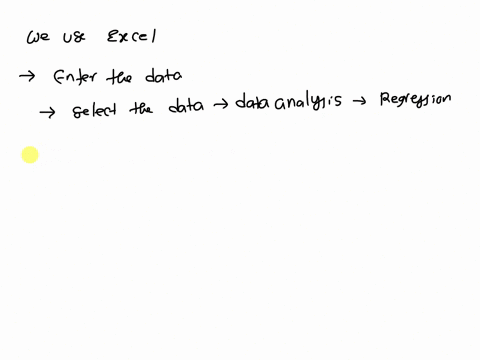 We use Excel
→ Enter the data
→ Select the data → data analysis → Regression